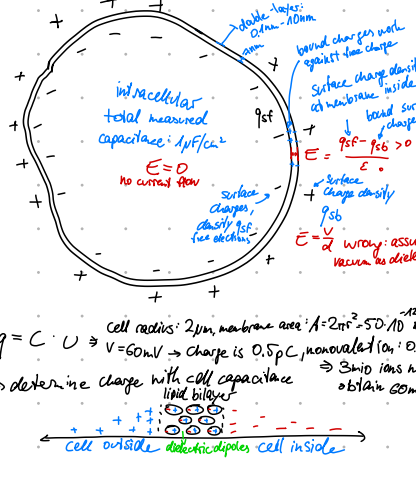 double-layer:
0.1nm-10nm
bound charges work
against free charge
surface charge density
at membrane inside
bound surface
charge
intracellular
total measured
capacitance: 1µF/cm²
E=0
no current flow
qsf
E = (qsf - qsb)/ε₀ > 0
surface
charge density
qsb
surface
charges,
density qsf
free electrons
E = V/d wrong: assu
vacuum as diele
q = C · U ⇒ cell radius: 2µm, membrane area: A=2πr²=50·10⁻¹²
V=60mV → charge is 0.5pC, monovalent ion: 0.
⇒ 3mio ions n
determine charge with cell capacitance obtain 60m
lipid bilayer
cell outside dielectric dipoles cell inside